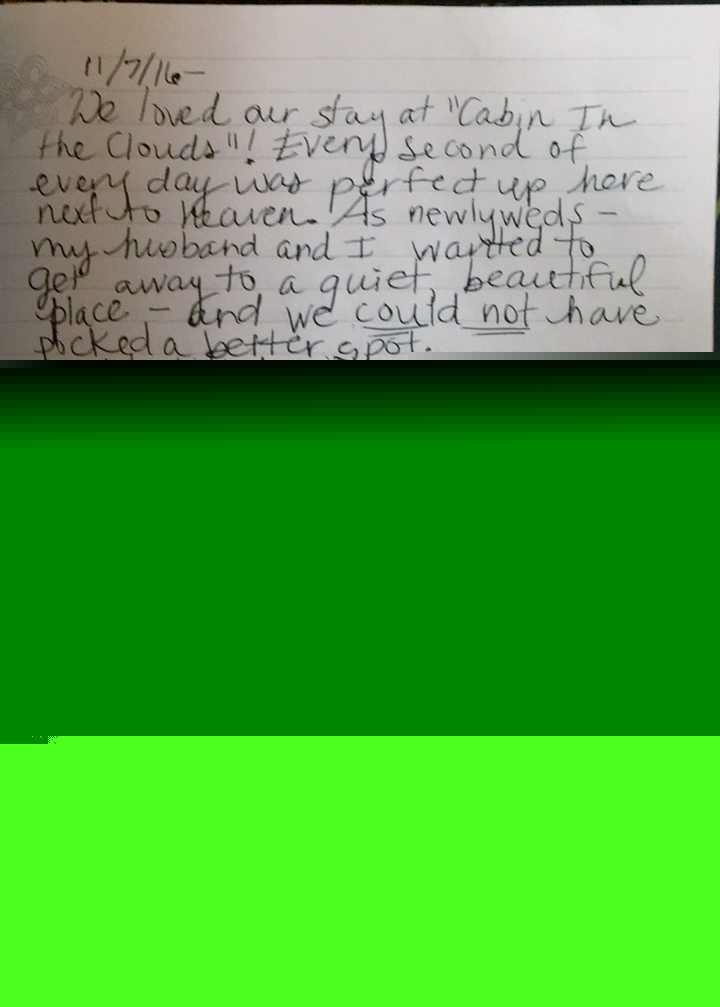 11/7/16-
We loved our stay at "Cabin In
the Clouds"! Every second of
every day was perfect up here
next to Heaven. As newlyweds -
my husband and I wanted to
get away to a quiet, beautiful
place - and we could not have
picked a better spot.